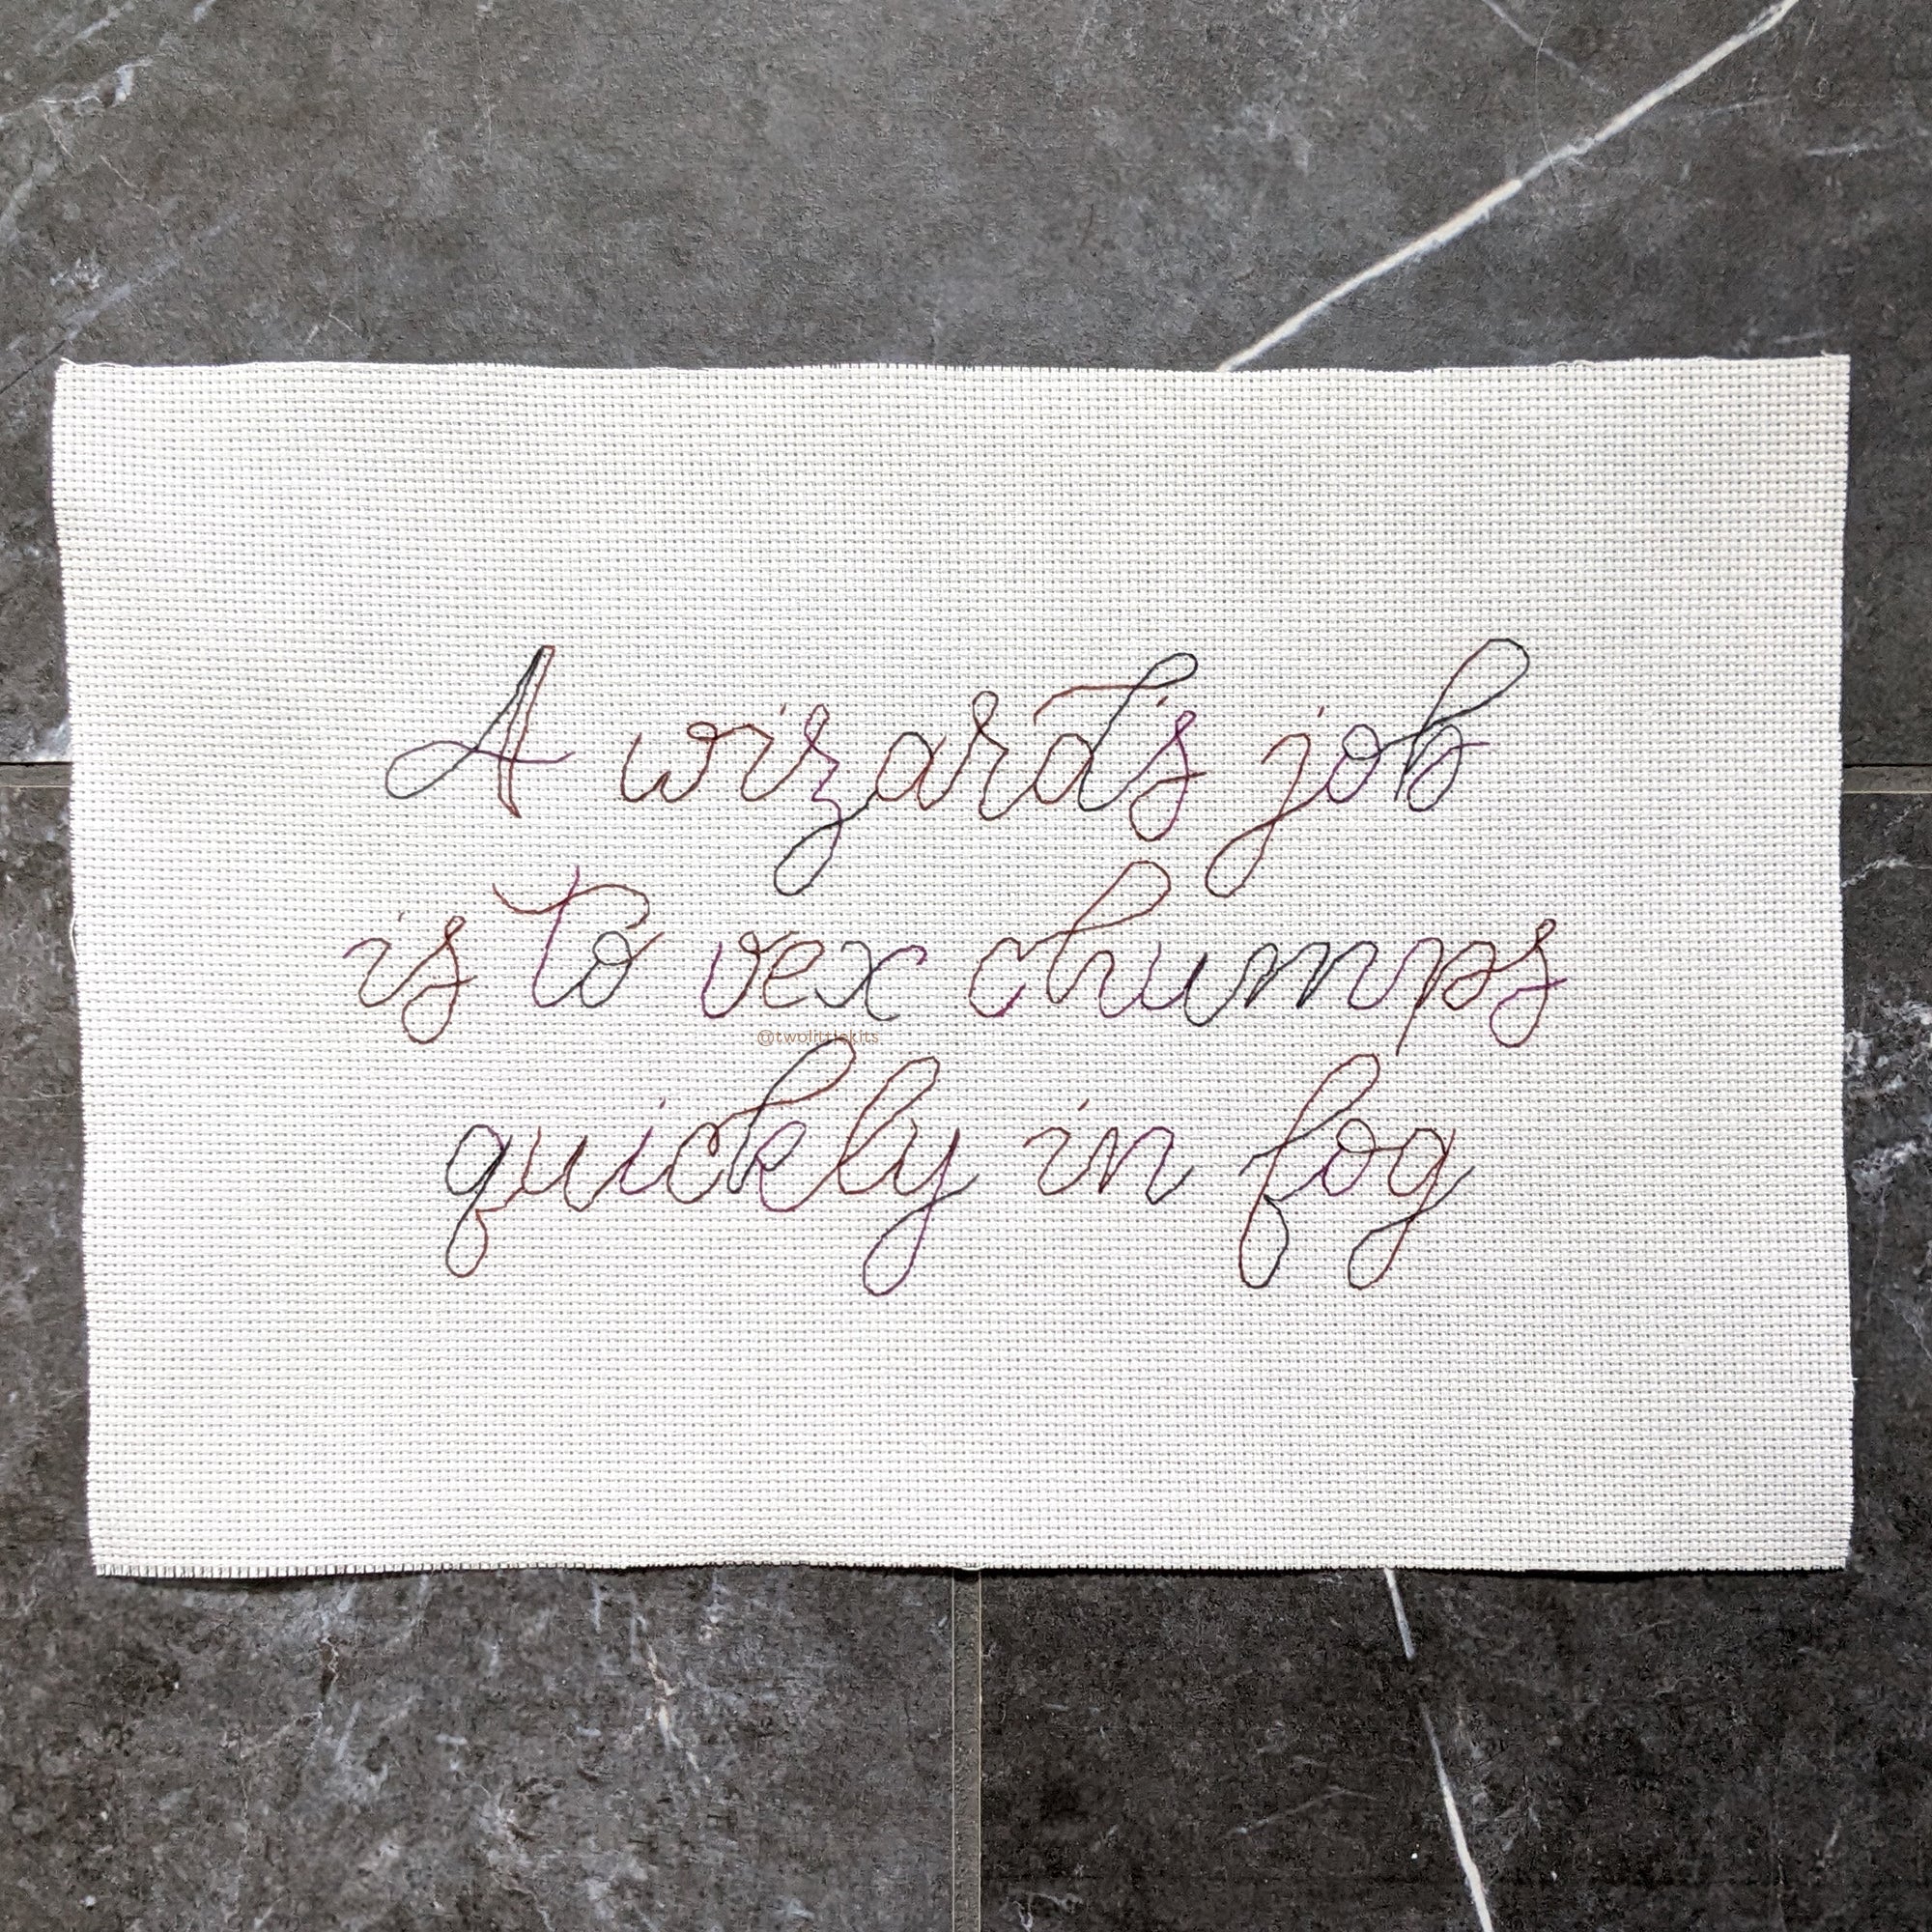 A wizard's job
is to vex chumps
@twolittlekits
quickly in fog